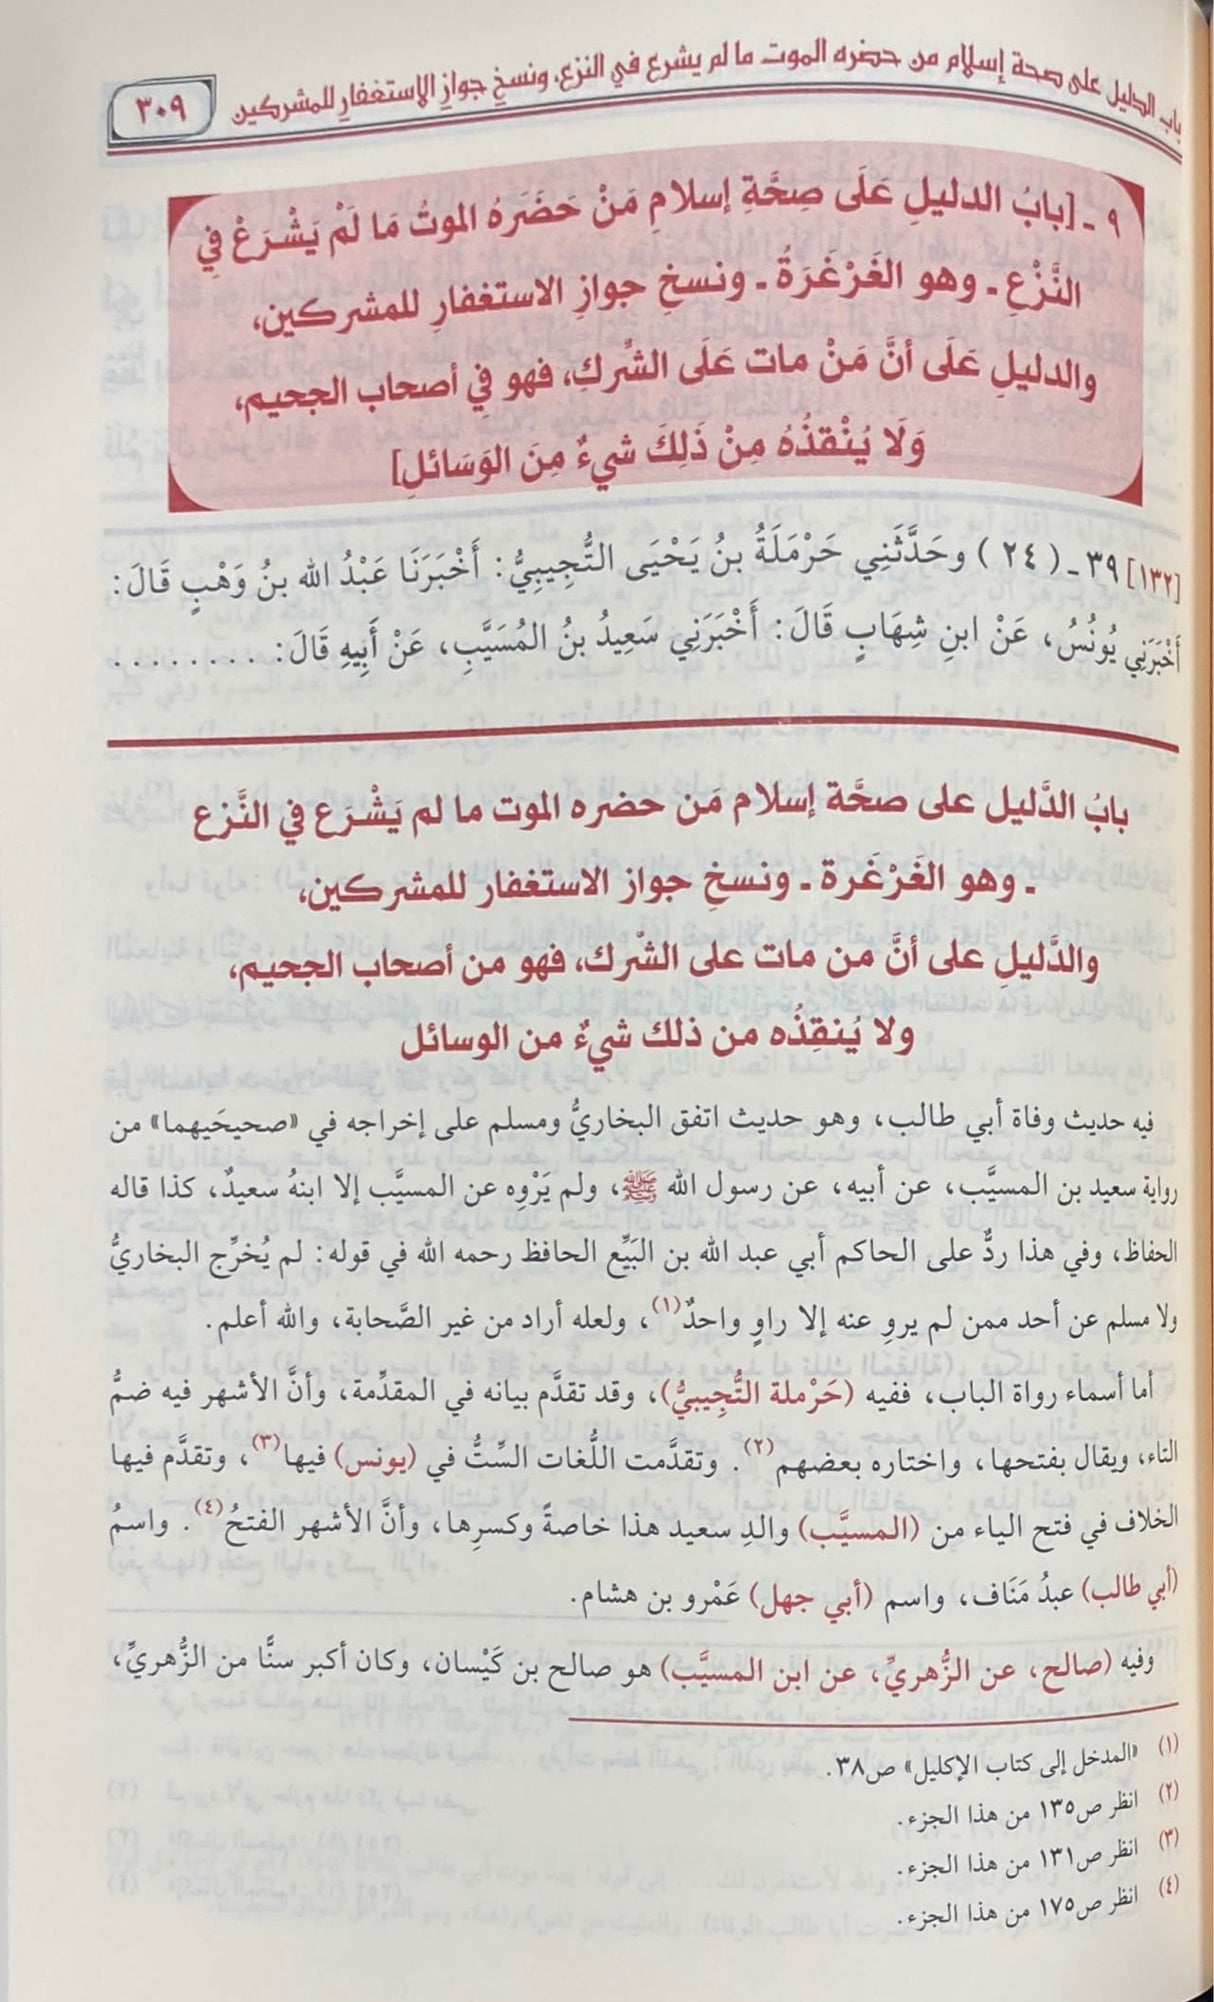 باب الدليل على صحة إسلام من حضره الموت ما لم يشرع في النزع، ونسخ جوازِ الاستغفارِ للمشركين
٣٠٩
٩ ـ [بابُ الدليلِ عَلَى صِحَّةِ إسلامِ مَنْ حَضَرَهُ الموتُ مَا لَمْ يَشْرَعْ فِي
النَّزْعِ ـ وهو الغَرْغَرَةُ ـ ونسخِ جوازِ الاستغفارِ للمشركين،
والدليلِ عَلَى أنَّ مَنْ مات عَلَى الشِّركِ، فهو فِي أصحاب الجحيم،
وَلَا يُنْقذُهُ مِنْ ذَلِكَ شيءٌ مِنَ الوَسَائلِ]
[١٣٢] ٣٩ ـ (٢٤) وحَدَّثَنِي حَرْمَلَةُ بنُ يَحْيَى التُّجِيبِيُّ: أَخْبَرَنَا عَبْدُ الله بنُ وَهْبٍ قَالَ:
أَخْبَرَنِي يُونُسُ، عَنْ ابنِ شِهَابٍ قَالَ: أَخْبَرَنِي سَعِيدُ بنُ المُسَيَّبِ، عَنْ أَبِيهِ قَالَ: ........
بابُ الدَّليل على صحَّة إسلام مَن حضره الموت ما لم يَشْرَع في النَّزع
ـ وهو الغَرْغَرة ـ ونسخِ جواز الاستغفار للمشركين،
والدَّليلِ على أنَّ من مات على الشِّرك، فهو من أصحاب الجحيم،
ولا يُنقِذُه من ذلك شيءٌ من الوسائل
فيه حديث وفاة أبي طالب، وهو حديث اتفق البخاريُّ ومسلم على إخراجه في «صحيحَيهما» من
رواية سعيد بن المسيَّب، عن أبيه، عن رسول الله ﷺ، ولم يَرْوِه عن المسيَّب إلا ابنهُ سعيدٌ، كذا قاله
الحفاظ، وفي هذا ردٌّ على الحاكم أبي عبد الله بن البَيِّع الحافظ رحمه الله في قوله: لم يُخرِّج البخاريُّ
ولا مسلم عن أحد ممن لم يروِ عنه إلا راوٍ واحدٌ(١)، ولعله أراد من غير الصَّحابة، والله أعلم.
أما أسماء رواة الباب، ففيه (حَرْملة التُّجِيبيُّ)، وقد تقدَّم بيانه في المقدِّمة، وأنَّ الأشهر فيه ضمُّ
التاء، ويقال بفتحها، واختاره بعضهم(٢). وتقدَّمت اللُّغات السِّتُّ في (يونس) فيها(٣)، وتقدَّم فيها
الخلاف في فتح الياء من (المسيَّب) والدِ سعيد هذا خاصةً وكسرِها، وأنَّ الأشهر الفتحُ(٤). واسمُ
(أبي طالب) عبدُ مَنَاف، واسم (أبي جهل) عَمْرو بن هشام.
وفيه (صالح، عن الزُّهريِّ، عن ابن المسيَّب) هو صالح بن كَيْسان، وكان أكبر سنًّا من الزُّهريِّ،
(١) «المدخل إلى كتاب الإكليل» ص٣٨.
(٢) انظر ص١٣٥ من هذا الجزء.
(٣) انظر ص١٣١ من هذا الجزء.
(٤) انظر ص١٧٥ من هذا الجزء.